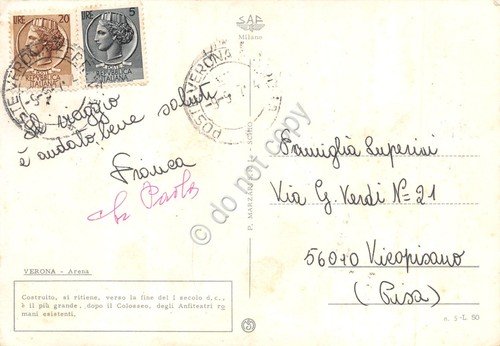 SAF
Milano
LIRE 20
LIRE 5
POSTE VERONA
POSTE VERONA
Il viaggio
è andato bene saluti
Franca
Paola
Famiglia Superisi
Via G. Verdi N= 21
56010 Vicopisano
(Pisa)
VERONA - Arena
Costruito, si ritiene, verso la fine del I secolo d.c.,
è il più grande, dopo il Colosseo, degli Anfiteatri ro
mani esistenti.
n. 5-L 50
© do not copy